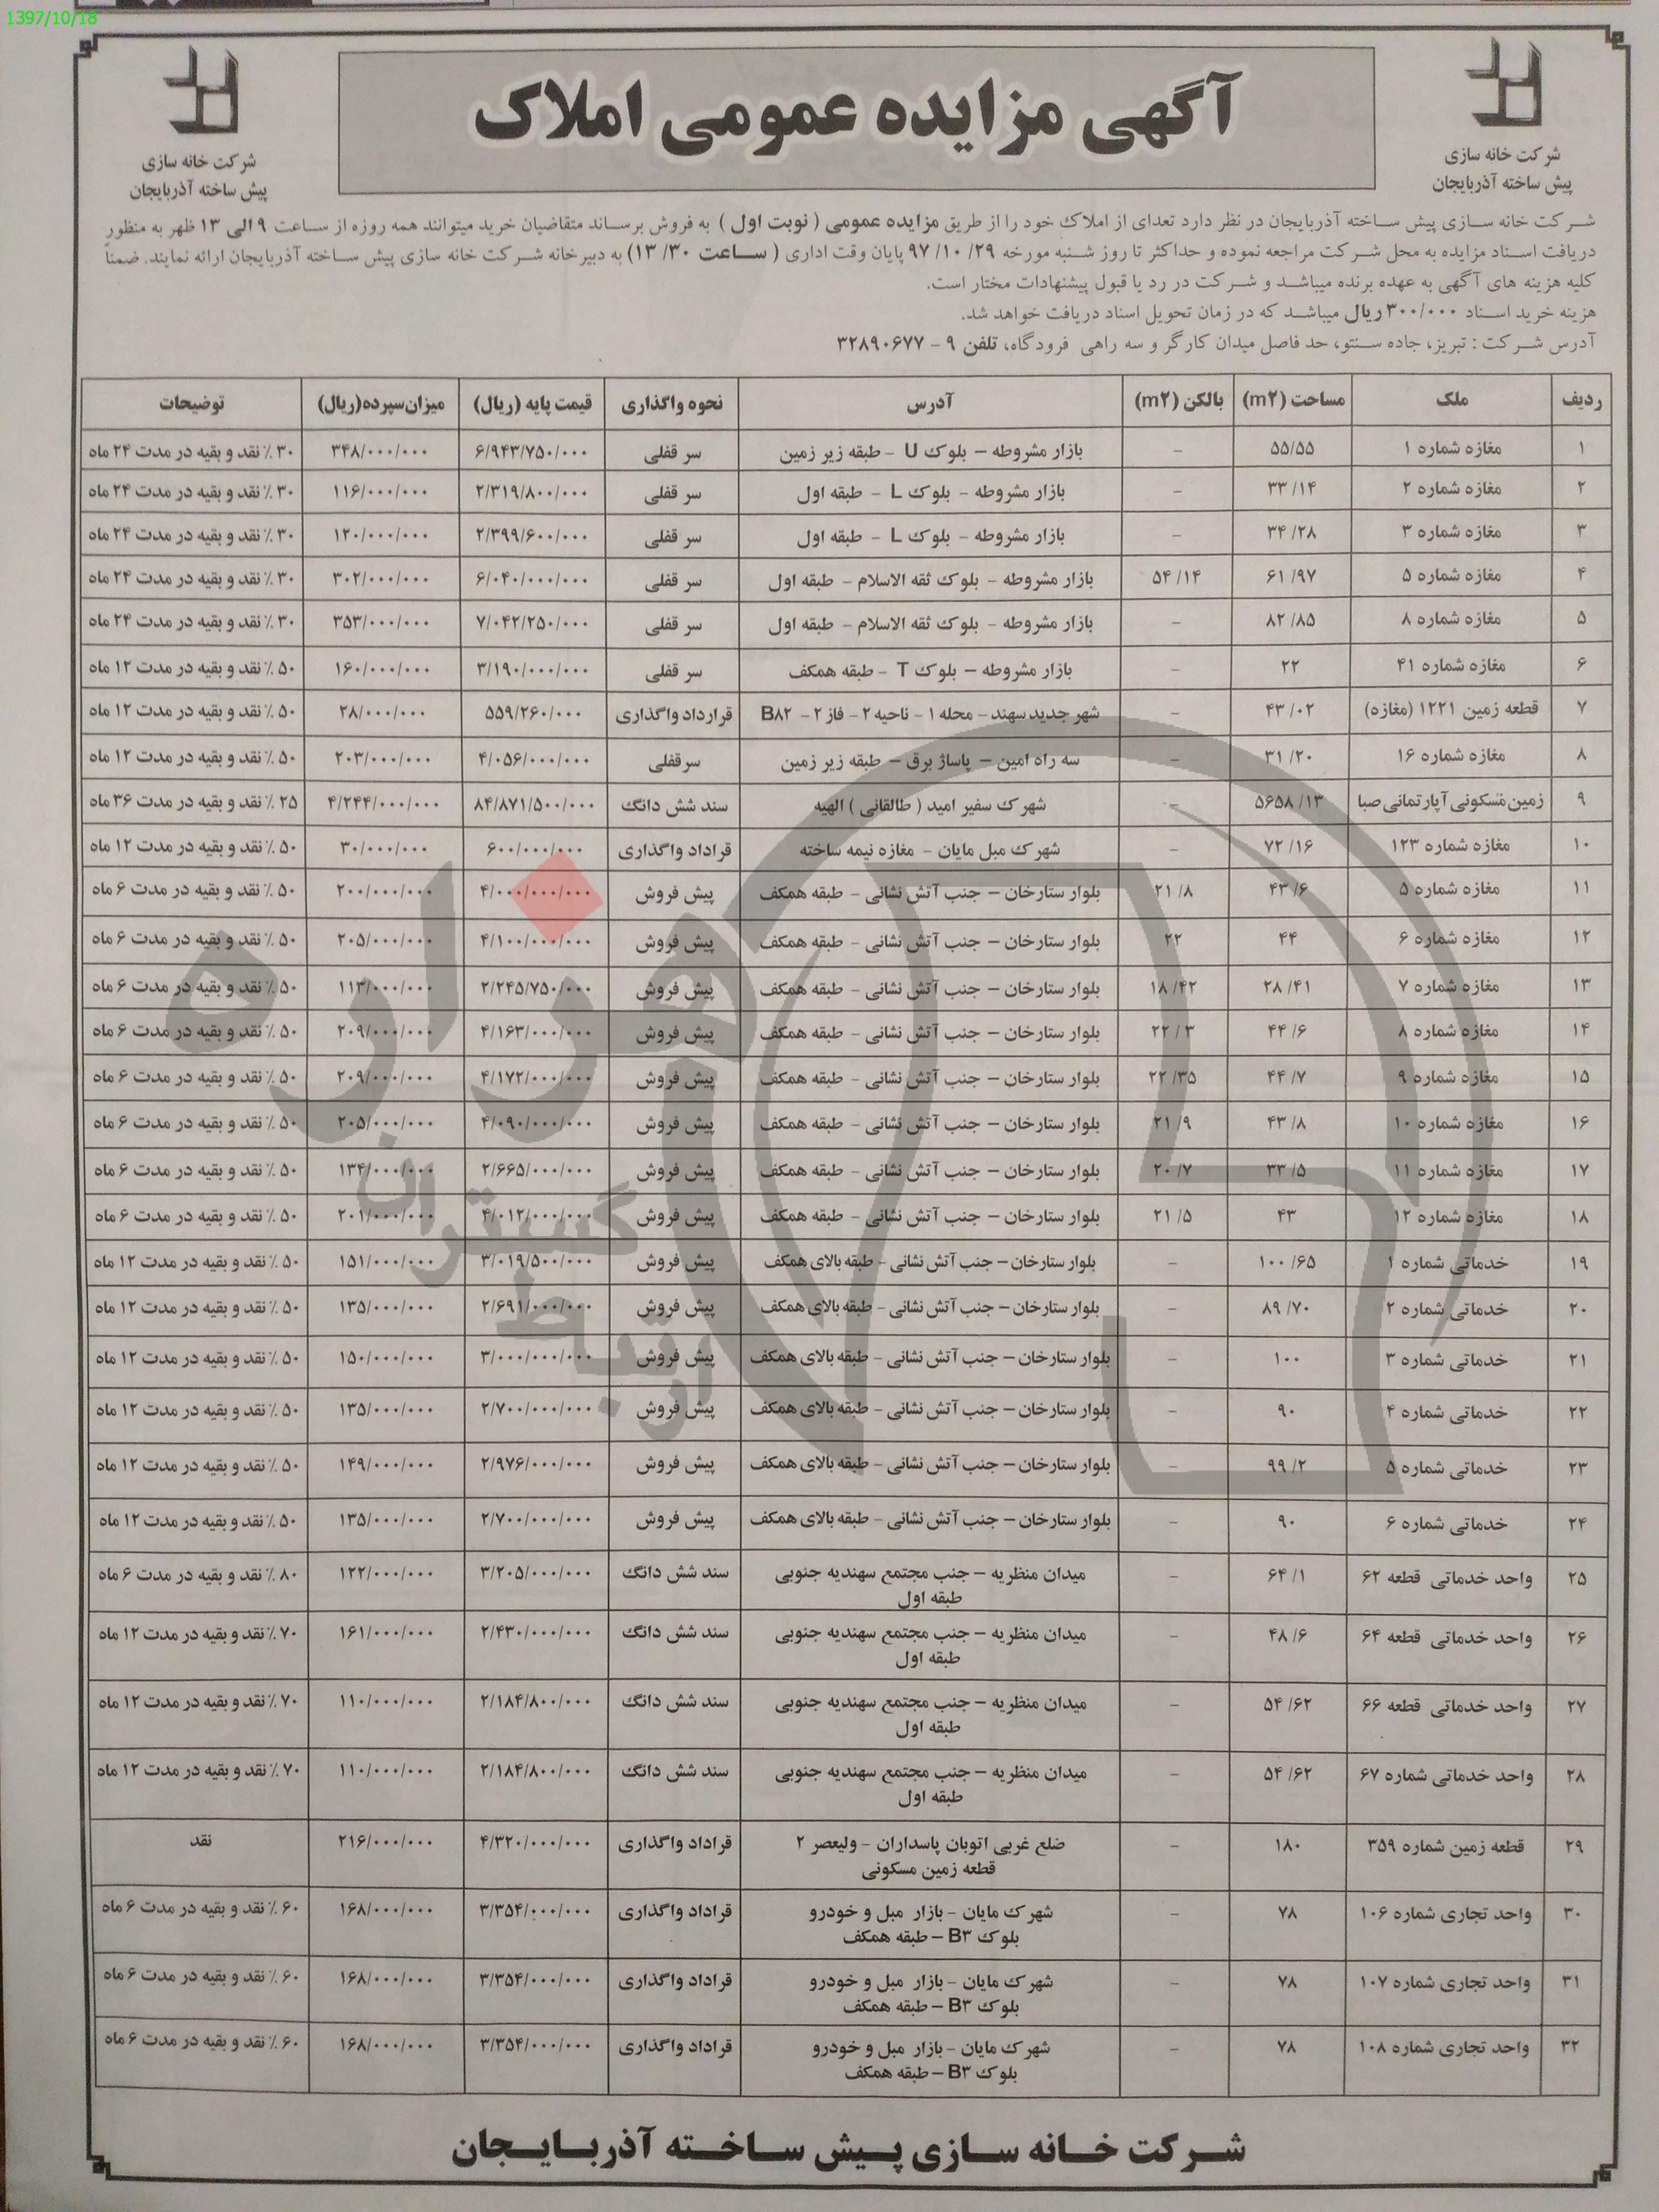 1397/10/18
آگهی مزایده عمومی املاک
شرکت خانه سازی
پیش ساخته آذربایجان
شرکت خانه سازی
پیش ساخته آذربایجان
شرکت خانه سازی پیش ساخته آذربایجان در نظر دارد تعدای از املاک خود را از طریق مزایده عمومی ( نوبت اول ) به فروش برساند متقاضیان خرید میتوانند همه روزه از ساعت ۹ الی ۱۳ ظهر به منظور
دریافت اسناد مزایده به محل شرکت مراجعه نموده و حداکثر تا روز شنبه مورخه ۹۷/۱۰/۲۹ پایان وقت اداری ( ساعت ۱۳/۳۰) به دبیرخانه شرکت خانه سازی پیش ساخته آذربایجان ارائه نمایند. ضمناً
کلیه هزینه های آگهی به عهده برنده میباشد و شرکت در رد یا قبول پیشنهادات مختار است.
هزینه خرید اسناد ۳۰۰/۰۰۰ ریال میباشد که در زمان تحویل اسناد دریافت خواهد شد.
آدرس شرکت : تبریز، جاده سنتو، حد فاصل میدان کارگر و سه راهی فرودگاه، تلفن ۹ - ۳۲۸۹۰۶۷۷
ردیف ملک مساحت (m۲) بالکن (m۲) آدرس نحوه واگذاری قیمت پایه (ریال) میزان سپرده(ریال) توضیحات
۱ مغازه شماره ۱ ۵۵/۵۵ - بازار مشروطه – بلوک U - طبقه زیر زمین سر قفلی ۶/۹۴۳/۷۵۰/۰۰۰ ۳۴۸/۰۰۰/۰۰۰ ۳۰٪ نقد و بقیه در مدت ۲۴ ماه
۲ مغازه شماره ۲ ۳۳/۱۴ - بازار مشروطه - بلوک L - طبقه اول سر قفلی ۲/۳۱۹/۸۰۰/۰۰۰ ۱۱۶/۰۰۰/۰۰۰ ۳۰٪ نقد و بقیه در مدت ۲۴ ماه
۳ مغازه شماره ۳ ۳۴/۲۸ - بازار مشروطه - بلوک L - طبقه اول سر قفلی ۲/۳۹۹/۶۰۰/۰۰۰ ۱۲۰/۰۰۰/۰۰۰ ۳۰٪ نقد و بقیه در مدت ۲۴ ماه
۴ مغازه شماره ۵ ۶۱/۹۷ ۵۴/۱۴ بازار مشروطه - بلوک ثقه الاسلام - طبقه اول سر قفلی ۶/۰۴۰/۰۰۰/۰۰۰ ۳۰۲/۰۰۰/۰۰۰ ۳۰٪ نقد و بقیه در مدت ۲۴ ماه
۵ مغازه شماره ۸ ۸۲/۸۵ - بازار مشروطه - بلوک ثقه الاسلام - طبقه اول سر قفلی ۷/۰۴۲/۲۵۰/۰۰۰ ۳۵۳/۰۰۰/۰۰۰ ۳۰٪ نقد و بقیه در مدت ۲۴ ماه
۶ مغازه شماره ۴۱ ۲۲ - بازار مشروطه – بلوک T - طبقه همکف سر قفلی ۳/۱۹۰/۰۰۰/۰۰۰ ۱۶۰/۰۰۰/۰۰۰ ۵۰٪ نقد و بقیه در مدت ۱۲ ماه
۷ قطعه زمین ۱۲۲۱ (مغازه) ۴۳/۰۲ - شهر جدید سهند - محله ۱ - ناحیه ۲ - فاز ۲ - B۸۲ قرارداد واگذاری ۵۵۹/۲۶۰/۰۰۰ ۲۸/۰۰۰/۰۰۰ ۵۰٪ نقد و بقیه در مدت ۱۲ ماه
۸ مغازه شماره ۱۶ ۳۱/۲۰ - سه راه امین – پاساژ برق – طبقه زیر زمین سرقفلی ۴/۰۵۶/۰۰۰/۰۰۰ ۲۰۳/۰۰۰/۰۰۰ ۵۰٪ نقد و بقیه در مدت ۱۲ ماه
۹ زمین مسکونی آپارتمانی صبا ۵۶۵۸/۱۳ - شهرک سفیر امید ( طالقانی ) الهیه سند شش دانگ ۸۴/۸۷۱/۵۰۰/۰۰۰ ۴/۲۴۴/۰۰۰/۰۰۰ ۲۵٪ نقد و بقیه در مدت ۳۶ ماه
۱۰ مغازه شماره ۱۲۳ ۷۲/۱۶ - شهرک مبل مایان - مغازه نیمه ساخته قراداد واگذاری ۶۰۰/۰۰۰/۰۰۰ ۳۰/۰۰۰/۰۰۰ ۵۰٪ نقد و بقیه در مدت ۱۲ ماه
۱۱ مغازه شماره ۵ ۴۳/۶ ۲۱/۸ بلوار ستارخان – جنب آتش نشانی - طبقه همکف پیش فروش ۴/۰۰۰/۰۰۰/۰۰۰ ۲۰۰/۰۰۰/۰۰۰ ۵۰٪ نقد و بقیه در مدت ۶ ماه
۱۲ مغازه شماره ۶ ۴۴ ۲۲ بلوار ستارخان – جنب آتش نشانی - طبقه همکف پیش فروش ۴/۱۰۰/۰۰۰/۰۰۰ ۲۰۵/۰۰۰/۰۰۰ ۵۰٪ نقد و بقیه در مدت ۶ ماه
۱۳ مغازه شماره ۷ ۲۸/۴۱ ۱۸/۴۲ بلوار ستارخان – جنب آتش نشانی - طبقه همکف پیش فروش ۲/۲۴۵/۷۵۰/۰۰۰ ۱۱۳/۰۰۰/۰۰۰ ۵۰٪ نقد و بقیه در مدت ۶ ماه
۱۴ مغازه شماره ۸ ۴۴/۶ ۲۲/۳ بلوار ستارخان – جنب آتش نشانی - طبقه همکف پیش فروش ۴/۱۶۳/۰۰۰/۰۰۰ ۲۰۹/۰۰۰/۰۰۰ ۵۰٪ نقد و بقیه در مدت ۶ ماه
۱۵ مغازه شماره ۹ ۴۴/۷ ۲۲/۳۵ بلوار ستارخان – جنب آتش نشانی - طبقه همکف پیش فروش ۴/۱۷۲/۰۰۰/۰۰۰ ۲۰۹/۰۰۰/۰۰۰ ۵۰٪ نقد و بقیه در مدت ۶ ماه
۱۶ مغازه شماره ۱۰ ۴۳/۸ ۲۱/۹ بلوار ستارخان – جنب آتش نشانی - طبقه همکف پیش فروش ۴/۰۹۰/۰۰۰/۰۰۰ ۲۰۵/۰۰۰/۰۰۰ ۵۰٪ نقد و بقیه در مدت ۶ ماه
۱۷ مغازه شماره ۱۱ ۳۳/۵ ۲۰/۷ بلوار ستارخان – جنب آتش نشانی - طبقه همکف پیش فروش ۲/۶۶۵/۰۰۰/۰۰۰ ۱۳۴/۰۰۰/۰۰۰ ۵۰٪ نقد و بقیه در مدت ۶ ماه
۱۸ مغازه شماره ۱۲ ۴۳ ۲۱/۵ بلوار ستارخان – جنب آتش نشانی - طبقه همکف پیش فروش ۴/۰۱۲/۰۰۰/۰۰۰ ۲۰۱/۰۰۰/۰۰۰ ۵۰٪ نقد و بقیه در مدت ۶ ماه
۱۹ خدماتی شماره ۱ ۱۰۰/۶۵ - بلوار ستارخان – جنب آتش نشانی - طبقه بالای همکف پیش فروش ۳/۰۱۹/۵۰۰/۰۰۰ ۱۵۱/۰۰۰/۰۰۰ ۵۰٪ نقد و بقیه در مدت ۱۲ ماه
۲۰ خدماتی شماره ۲ ۸۹/۷۰ - بلوار ستارخان – جنب آتش نشانی - طبقه بالای همکف پیش فروش ۲/۶۹۱/۰۰۰/۰۰۰ ۱۳۵/۰۰۰/۰۰۰ ۵۰٪ نقد و بقیه در مدت ۱۲ ماه
۲۱ خدماتی شماره ۳ ۱۰۰ - بلوار ستارخان – جنب آتش نشانی - طبقه بالای همکف پیش فروش ۳/۰۰۰/۰۰۰/۰۰۰ ۱۵۰/۰۰۰/۰۰۰ ۵۰٪ نقد و بقیه در مدت ۱۲ ماه
۲۲ خدماتی شماره ۴ ۹۰ - بلوار ستارخان – جنب آتش نشانی - طبقه بالای همکف پیش فروش ۲/۷۰۰/۰۰۰/۰۰۰ ۱۳۵/۰۰۰/۰۰۰ ۵۰٪ نقد و بقیه در مدت ۱۲ ماه
۲۳ خدماتی شماره ۵ ۹۹/۲ - بلوار ستارخان – جنب آتش نشانی - طبقه بالای همکف پیش فروش ۲/۹۷۶/۰۰۰/۰۰۰ ۱۴۹/۰۰۰/۰۰۰ ۵۰٪ نقد و بقیه در مدت ۱۲ ماه
۲۴ خدماتی شماره ۶ ۹۰ - بلوار ستارخان – جنب آتش نشانی - طبقه بالای همکف پیش فروش ۲/۷۰۰/۰۰۰/۰۰۰ ۱۳۵/۰۰۰/۰۰۰ ۵۰٪ نقد و بقیه در مدت ۱۲ ماه
۲۵ واحد خدماتی قطعه ۶۲ ۶۴/۱ - میدان منظریه – جنب مجتمع سهندیه جنوبی سند شش دانگ ۳/۲۰۵/۰۰۰/۰۰۰ ۱۲۲/۰۰۰/۰۰۰ ۸۰٪ نقد و بقیه در مدت ۶ ماه
طبقه اول
۲۶ واحد خدماتی قطعه ۶۴ ۴۸/۶ - میدان منظریه – جنب مجتمع سهندیه جنوبی سند شش دانگ ۲/۴۳۰/۰۰۰/۰۰۰ ۱۶۱/۰۰۰/۰۰۰ ۷۰٪ نقد و بقیه در مدت ۱۲ ماه
طبقه اول
۲۷ واحد خدماتی قطعه ۶۶ ۵۴/۶۲ - میدان منظریه – جنب مجتمع سهندیه جنوبی سند شش دانگ ۲/۱۸۴/۸۰۰/۰۰۰ ۱۱۰/۰۰۰/۰۰۰ ۷۰٪ نقد و بقیه در مدت ۱۲ ماه
طبقه اول
۲۸ واحد خدماتی شماره ۶۷ ۵۴/۶۲ - میدان منظریه – جنب مجتمع سهندیه جنوبی سند شش دانگ ۲/۱۸۴/۸۰۰/۰۰۰ ۱۱۰/۰۰۰/۰۰۰ ۷۰٪ نقد و بقیه در مدت ۱۲ ماه
طبقه اول
۲۹ قطعه زمین شماره ۳۵۹ ۱۸۰ - ضلع غربی اتوبان پاسداران - ولیعصر ۲ قراداد واگذاری ۴/۳۲۰/۰۰۰/۰۰۰ ۲۱۶/۰۰۰/۰۰۰ نقد
قطعه زمین مسکونی
۳۰ واحد تجاری شماره ۱۰۶ ۷۸ - شهرک مایان - بازار مبل و خودرو قراداد واگذاری ۳/۳۵۴/۰۰۰/۰۰۰ ۱۶۸/۰۰۰/۰۰۰ ۶۰٪ نقد و بقیه در مدت ۶ ماه
بلوک B۳ – طبقه همکف
۳۱ واحد تجاری شماره ۱۰۷ ۷۸ - شهرک مایان - بازار مبل و خودرو قراداد واگذاری ۳/۳۵۴/۰۰۰/۰۰۰ ۱۶۸/۰۰۰/۰۰۰ ۶۰٪ نقد و بقیه در مدت ۶ ماه
بلوک B۳ – طبقه همکف
۳۲ واحد تجاری شماره ۱۰۸ ۷۸ - شهرک مایان - بازار مبل و خودرو قراداد واگذاری ۳/۳۵۴/۰۰۰/۰۰۰ ۱۶۸/۰۰۰/۰۰۰ ۶۰٪ نقد و بقیه در مدت ۶ ماه
بلوک B۳ – طبقه همکف
شرکت خانه سازی پیش ساخته آذربایجان
هزاره
گستران
ارتباط